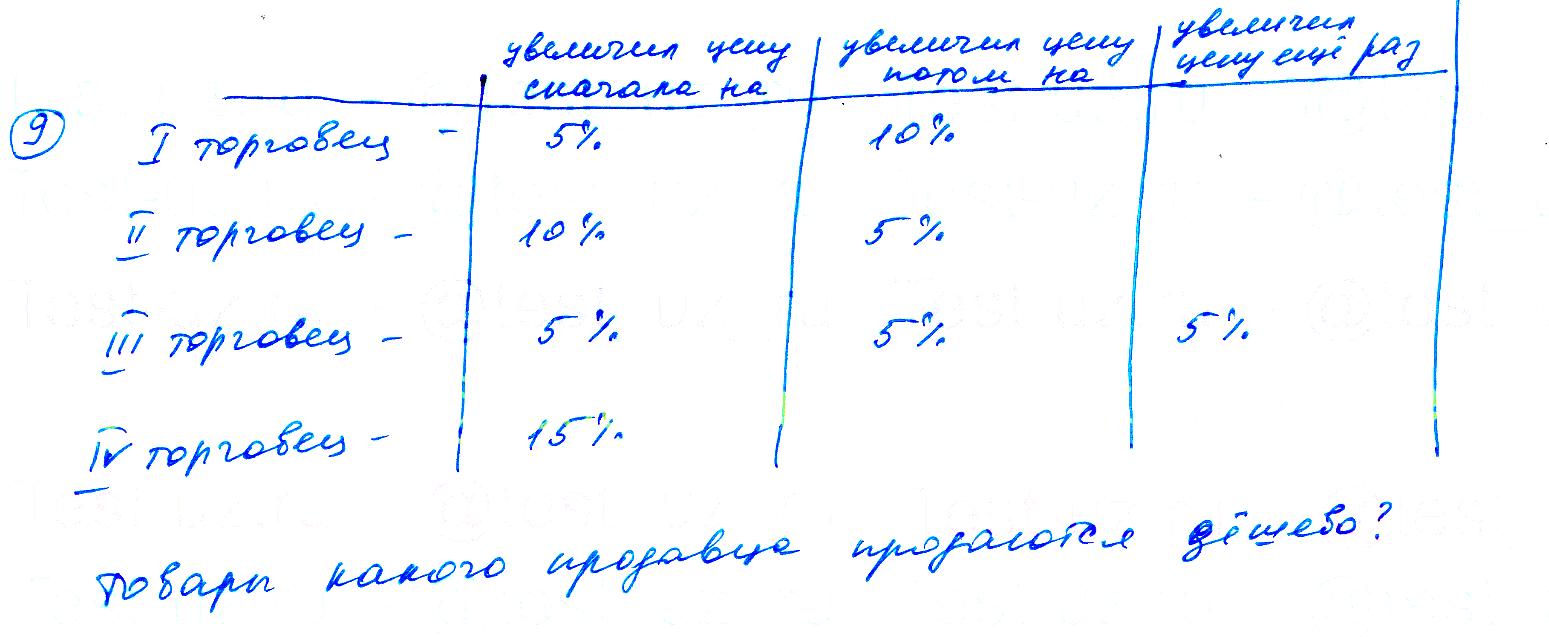 увеличил цену сначала на | увеличил цену потом на | увеличил цену ещё раз
9 I торговец - 5% 10%
II торговец - 10% 5%
III торговец - 5% 5% 5%
IV торговец - 15%
товары какого продавца продаются дёшево?